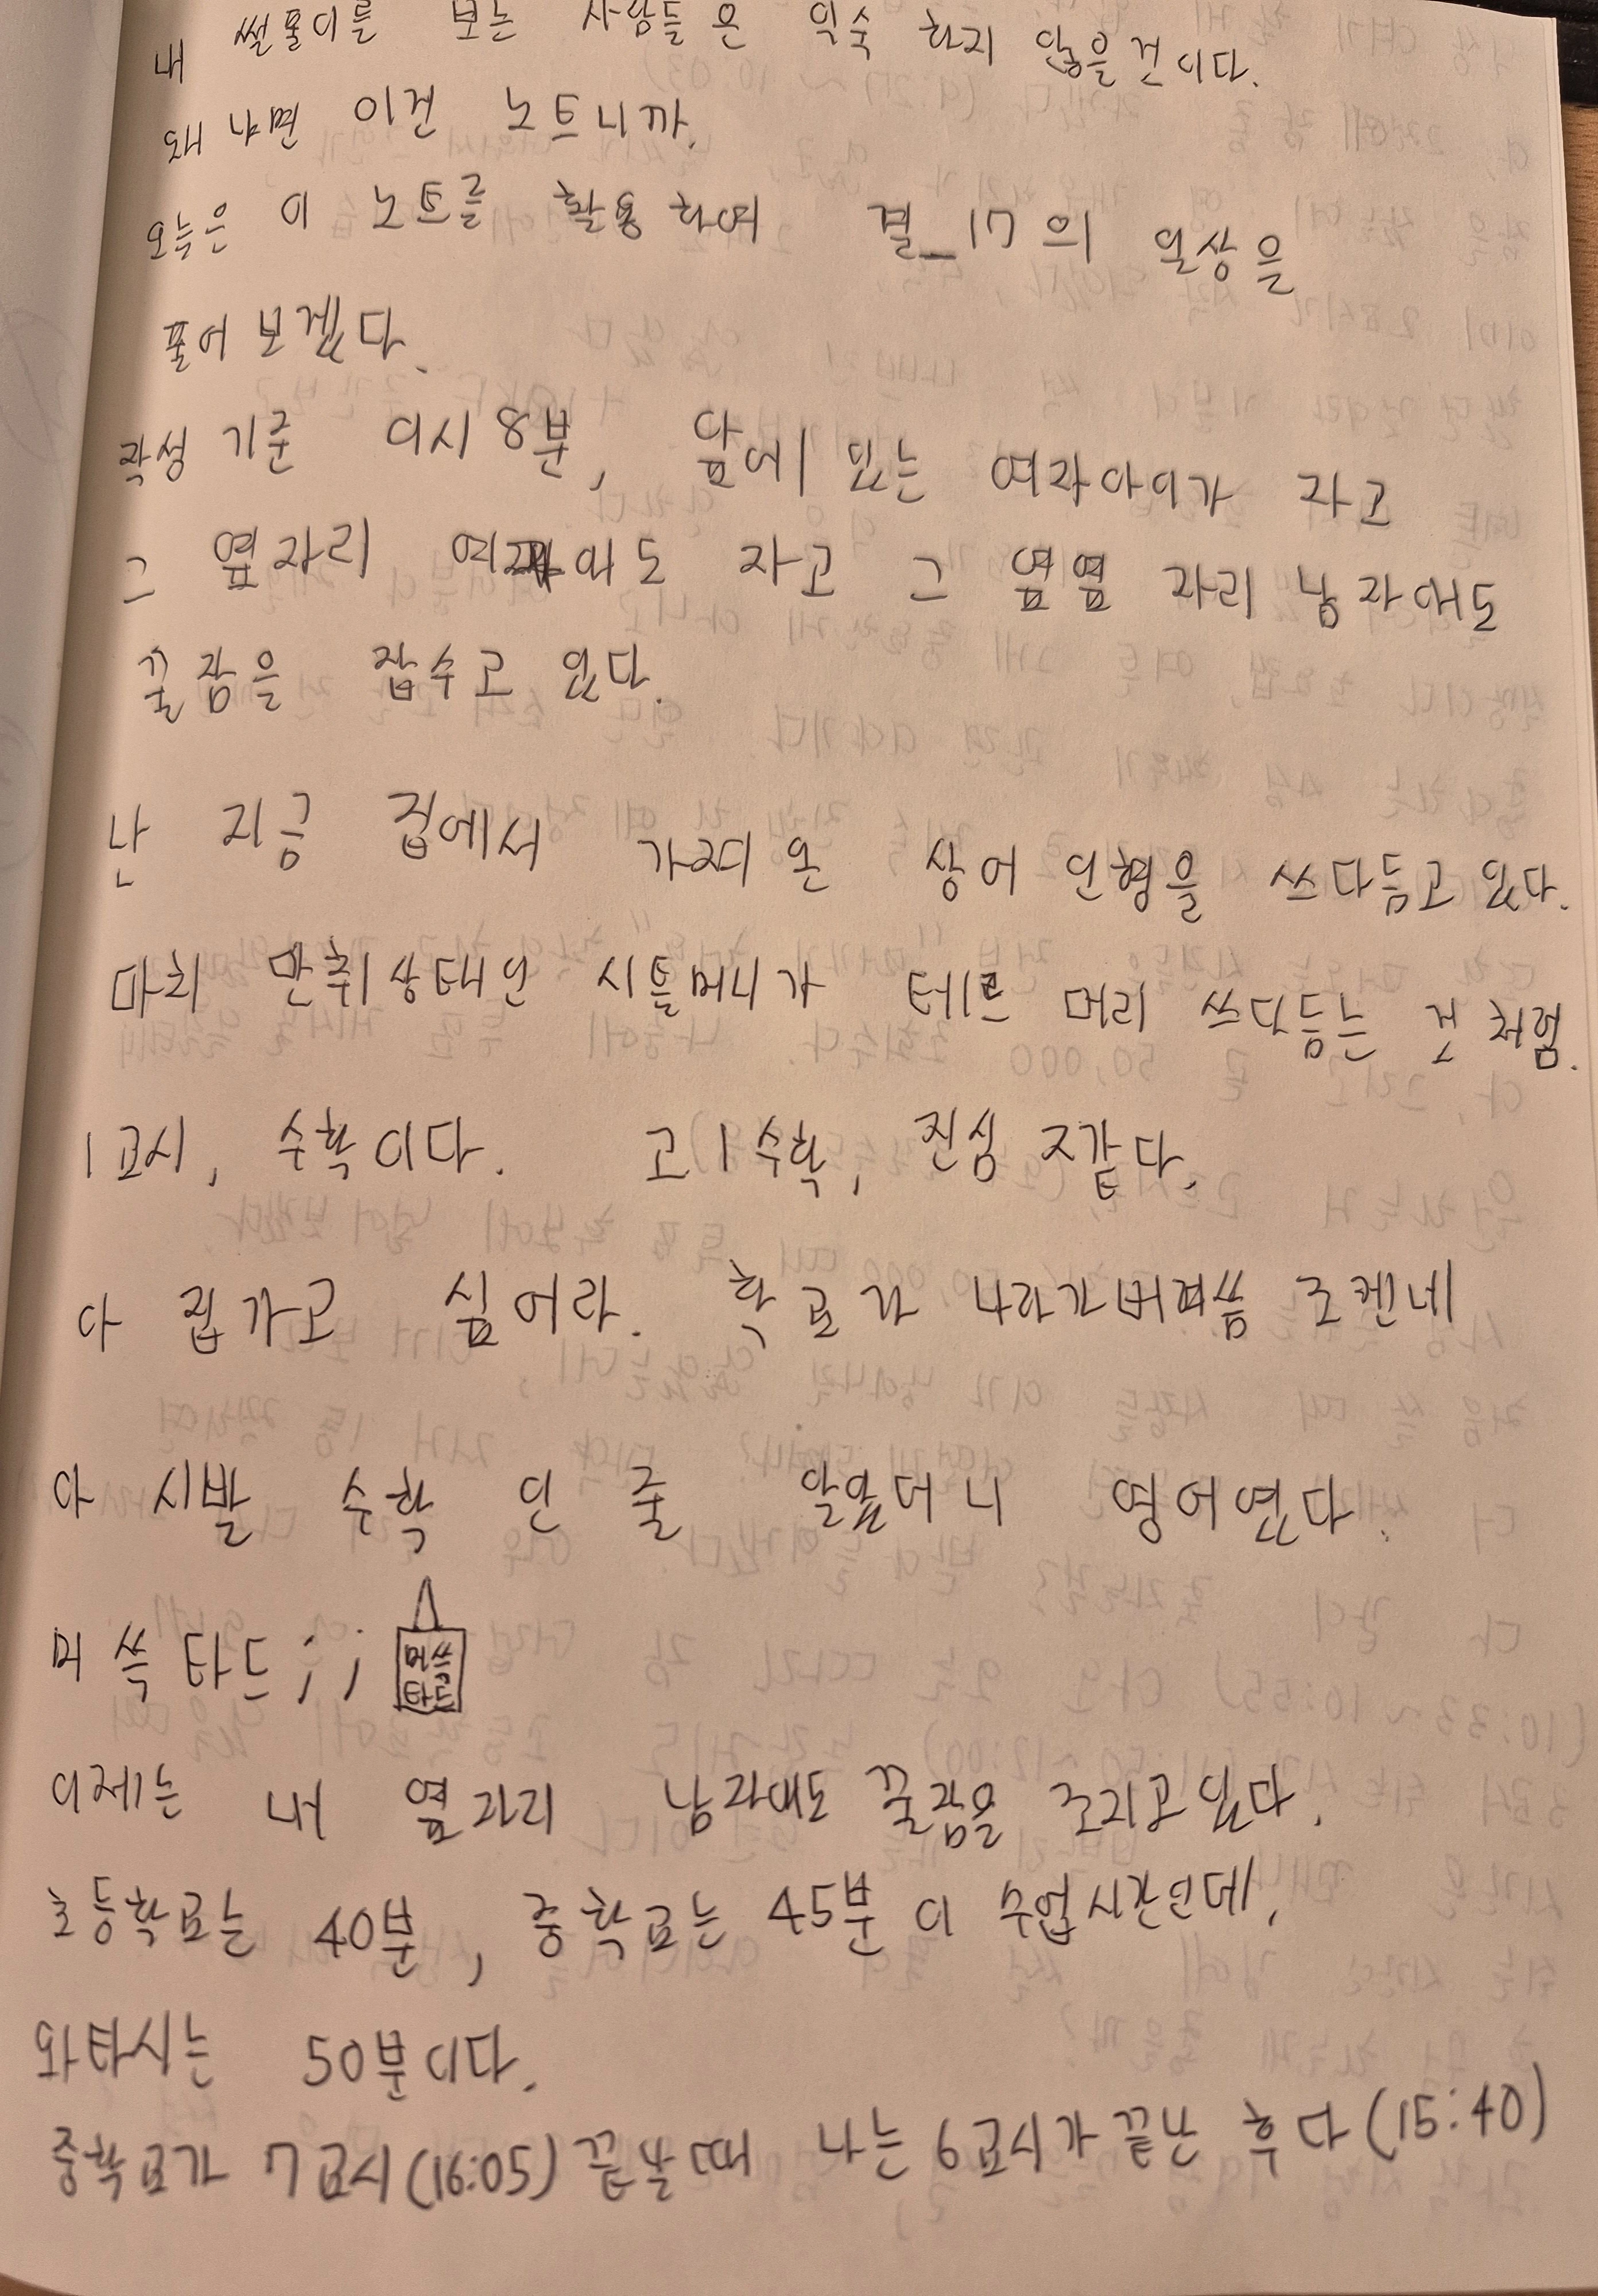 내 썰풀이를 보는 사람들은 익숙 하지 않을 건이다.
왜냐면 이건 노트니까.
오늘은 이 노트를 활용하여 결_17의 일상을
풀어보겠다.
작성 기준 이시 8분, 앞에 있는 여자아이가 자고
그 옆자리 여자아도 자고 그 옆옆 자리 남자애도
꿀잠을 잡수고 있다.
난 지금 집에서 가져온 상어 인형을 쓰다듬고 있다.
마치 만취상태인 시틀머니가 테르 머리 쓰다듬는 것처럼.
1교시, 수학이다. 고1수학, 진심 ㅈ같다.
다 집가고 싶어라. 학교가 나라가버려씀 조켄네
아 시발 수학 인 줄 알았더니 영어였다.
머쓱타드;; 머쓱
타드
이제는 내 옆자리 남자애도 꿀잠을 조지고 있다.
초등학교는 40분, 중학교는 45분이 수업시간인데,
와타시는 50분이다.
중학교가 7교시(16:05) 끝날때 나는 6교시가 끝난 후다(15:40)